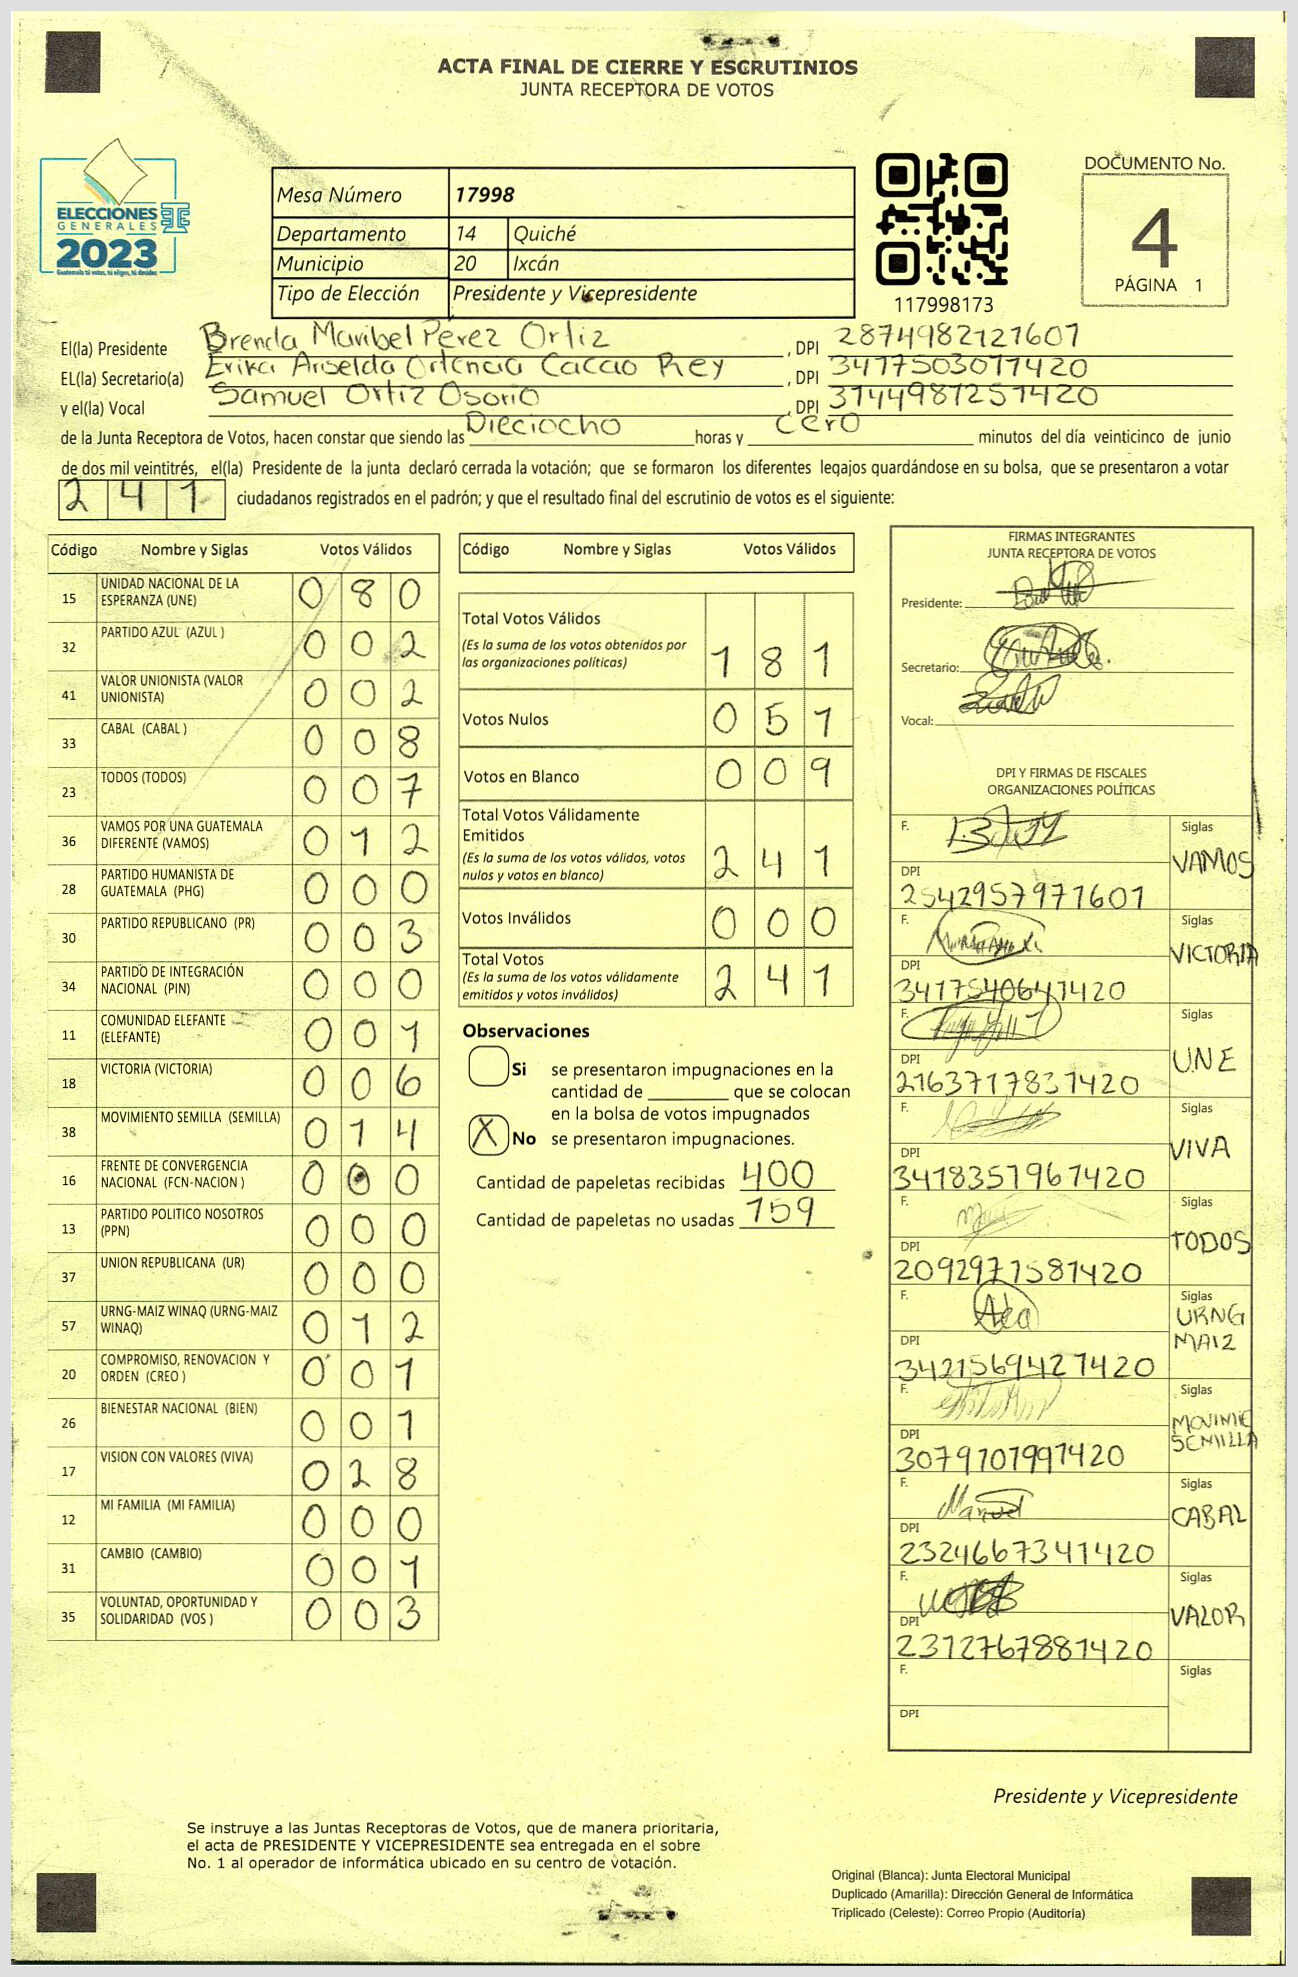 ACTA FINAL DE CIERRE Y ESCRUTINIOS
JUNTA RECEPTORA DE VOTOS
ELECCIONES
GENERALES
2023
Guatemala tú votas, tú eliges, tú decides
Mesa Número 17998
Departamento 14 Quiché
Municipio 20 Ixcán
Tipo de Elección Presidente y Vicepresidente
117998173
DOCUMENTO No.
4
PÁGINA 1
El(la) Presidente Brenda Maribel Perez Ortiz, DPI 2874982121601
EL(la) Secretario(a) Erika Griselda Ortencia Caccao Rey, DPI 3417503011420
y el(la) Vocal Samuel Ortiz Osorio, DPI 3144981251420
de la Junta Receptora de Votos, hacen constar que siendo las Dieciocho horas y cero minutos del día veinticinco de junio
de dos mil veintitrés, el(la) Presidente de la junta declaró cerrada la votación; que se formaron los diferentes legajos guardándose en su bolsa, que se presentaron a votar
241 ciudadanos registrados en el padrón; y que el resultado final del escrutinio de votos es el siguiente:
Código Nombre y Siglas Votos Válidos
15 UNIDAD NACIONAL DE LA ESPERANZA (UNE) 080
32 PARTIDO AZUL (AZUL ) 002
41 VALOR UNIONISTA (VALOR UNIONISTA) 002
33 CABAL (CABAL ) 008
23 TODOS (TODOS) 007
36 VAMOS POR UNA GUATEMALA DIFERENTE (VAMOS) 012
28 PARTIDO HUMANISTA DE GUATEMALA (PHG) 000
30 PARTIDO REPUBLICANO (PR) 003
34 PARTIDO DE INTEGRACIÓN NACIONAL (PIN) 000
11 COMUNIDAD ELEFANTE (ELEFANTE) 001
18 VICTORIA (VICTORIA) 006
38 MOVIMIENTO SEMILLA (SEMILLA) 014
16 FRENTE DE CONVERGENCIA NACIONAL (FCN-NACION ) 000
13 PARTIDO POLITICO NOSOTROS (PPN) 000
37 UNION REPUBLICANA (UR) 000
57 URNG-MAIZ WINAQ (URNG-MAIZ WINAQ) 012
20 COMPROMISO, RENOVACION Y ORDEN (CREO ) 001
26 BIENESTAR NACIONAL (BIEN) 001
17 VISION CON VALORES (VIVA) 028
12 MI FAMILIA (MI FAMILIA) 000
31 CAMBIO (CAMBIO) 001
35 VOLUNTAD, OPORTUNIDAD Y SOLIDARIDAD (VOS ) 003
Código Nombre y Siglas Votos Válidos
Total Votos Válidos
(Es la suma de los votos obtenidos por
las organizaciones políticas) 181
Votos Nulos 051
Votos en Blanco 009
Total Votos Válidamente
Emitidos
(Es la suma de los votos válidos, votos
nulos y votos en blanco) 241
Votos Inválidos 000
Total Votos
(Es la suma de los votos válidamente
emitidos y votos inválidos) 241
Observaciones
Si se presentaron impugnaciones en la
cantidad de ________ que se colocan
en la bolsa de votos impugnados
X No se presentaron impugnaciones.
Cantidad de papeletas recibidas 400
Cantidad de papeletas no usadas 159
FIRMAS INTEGRANTES
JUNTA RECEPTORA DE VOTOS
Presidente:
Secretario:
Vocal:
DPI Y FIRMAS DE FISCALES
ORGANIZACIONES POLÍTICAS
F. Siglas
VAMOS
DPI
2542957971601
F. Siglas
VICTORIA
DPI
3417540641420
F. Siglas
UNE
DPI
2163717831420
F. Siglas
VIVA
DPI
3418351961420
F. Siglas
TODOS
DPI
2092971581420
F. Siglas
URNG
MAIZ
DPI
3421569421420
F. Siglas
MOVIMIE
SEMILLA
DPI
3079101991420
F. Manuel Siglas
CABAL
DPI
2324667341420
F. Siglas
VALOR
DPI
2312767881420
F. Siglas
DPI
Presidente y Vicepresidente
Se instruye a las Juntas Receptoras de Votos, que de manera prioritaria,
el acta de PRESIDENTE Y VICEPRESIDENTE sea entregada en el sobre
No. 1 al operador de informática ubicado en su centro de votación.
Original (Blanca): Junta Electoral Municipal
Duplicado (Amarilla): Dirección General de Informática
Triplicado (Celeste): Correo Propio (Auditoría)